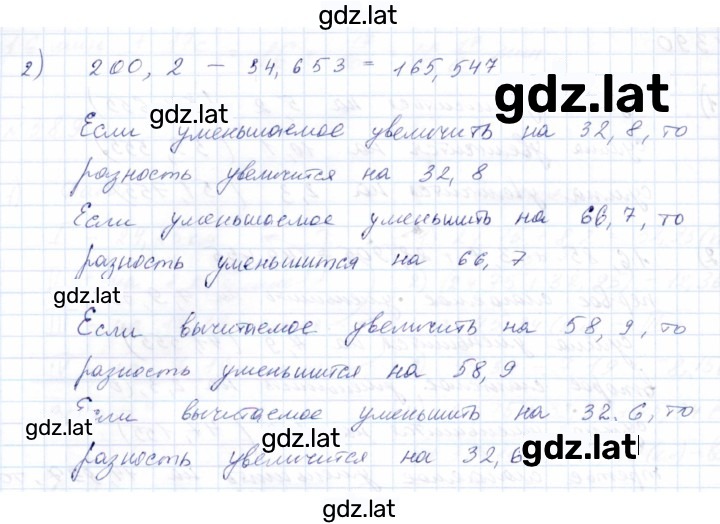 gdz.lat
2) 200,2 - 34,653 = 165,547
gdz.lat
gdz.lat
Если уменьшаемое увеличить на 32,8, то
разность увеличится на 32,8
Если уменьшаемое уменьшить на 66,7, то
разность уменьшится на 66,7
gdz.lat
Если вычитаемое увеличить на 58,9, то
разность уменьшится на 58,9
Если вычитаемое уменьшить на 32.6, то
gdz.lat
gdz.lat
gdz.lat
разность увеличится на 32,6
gdz.lat